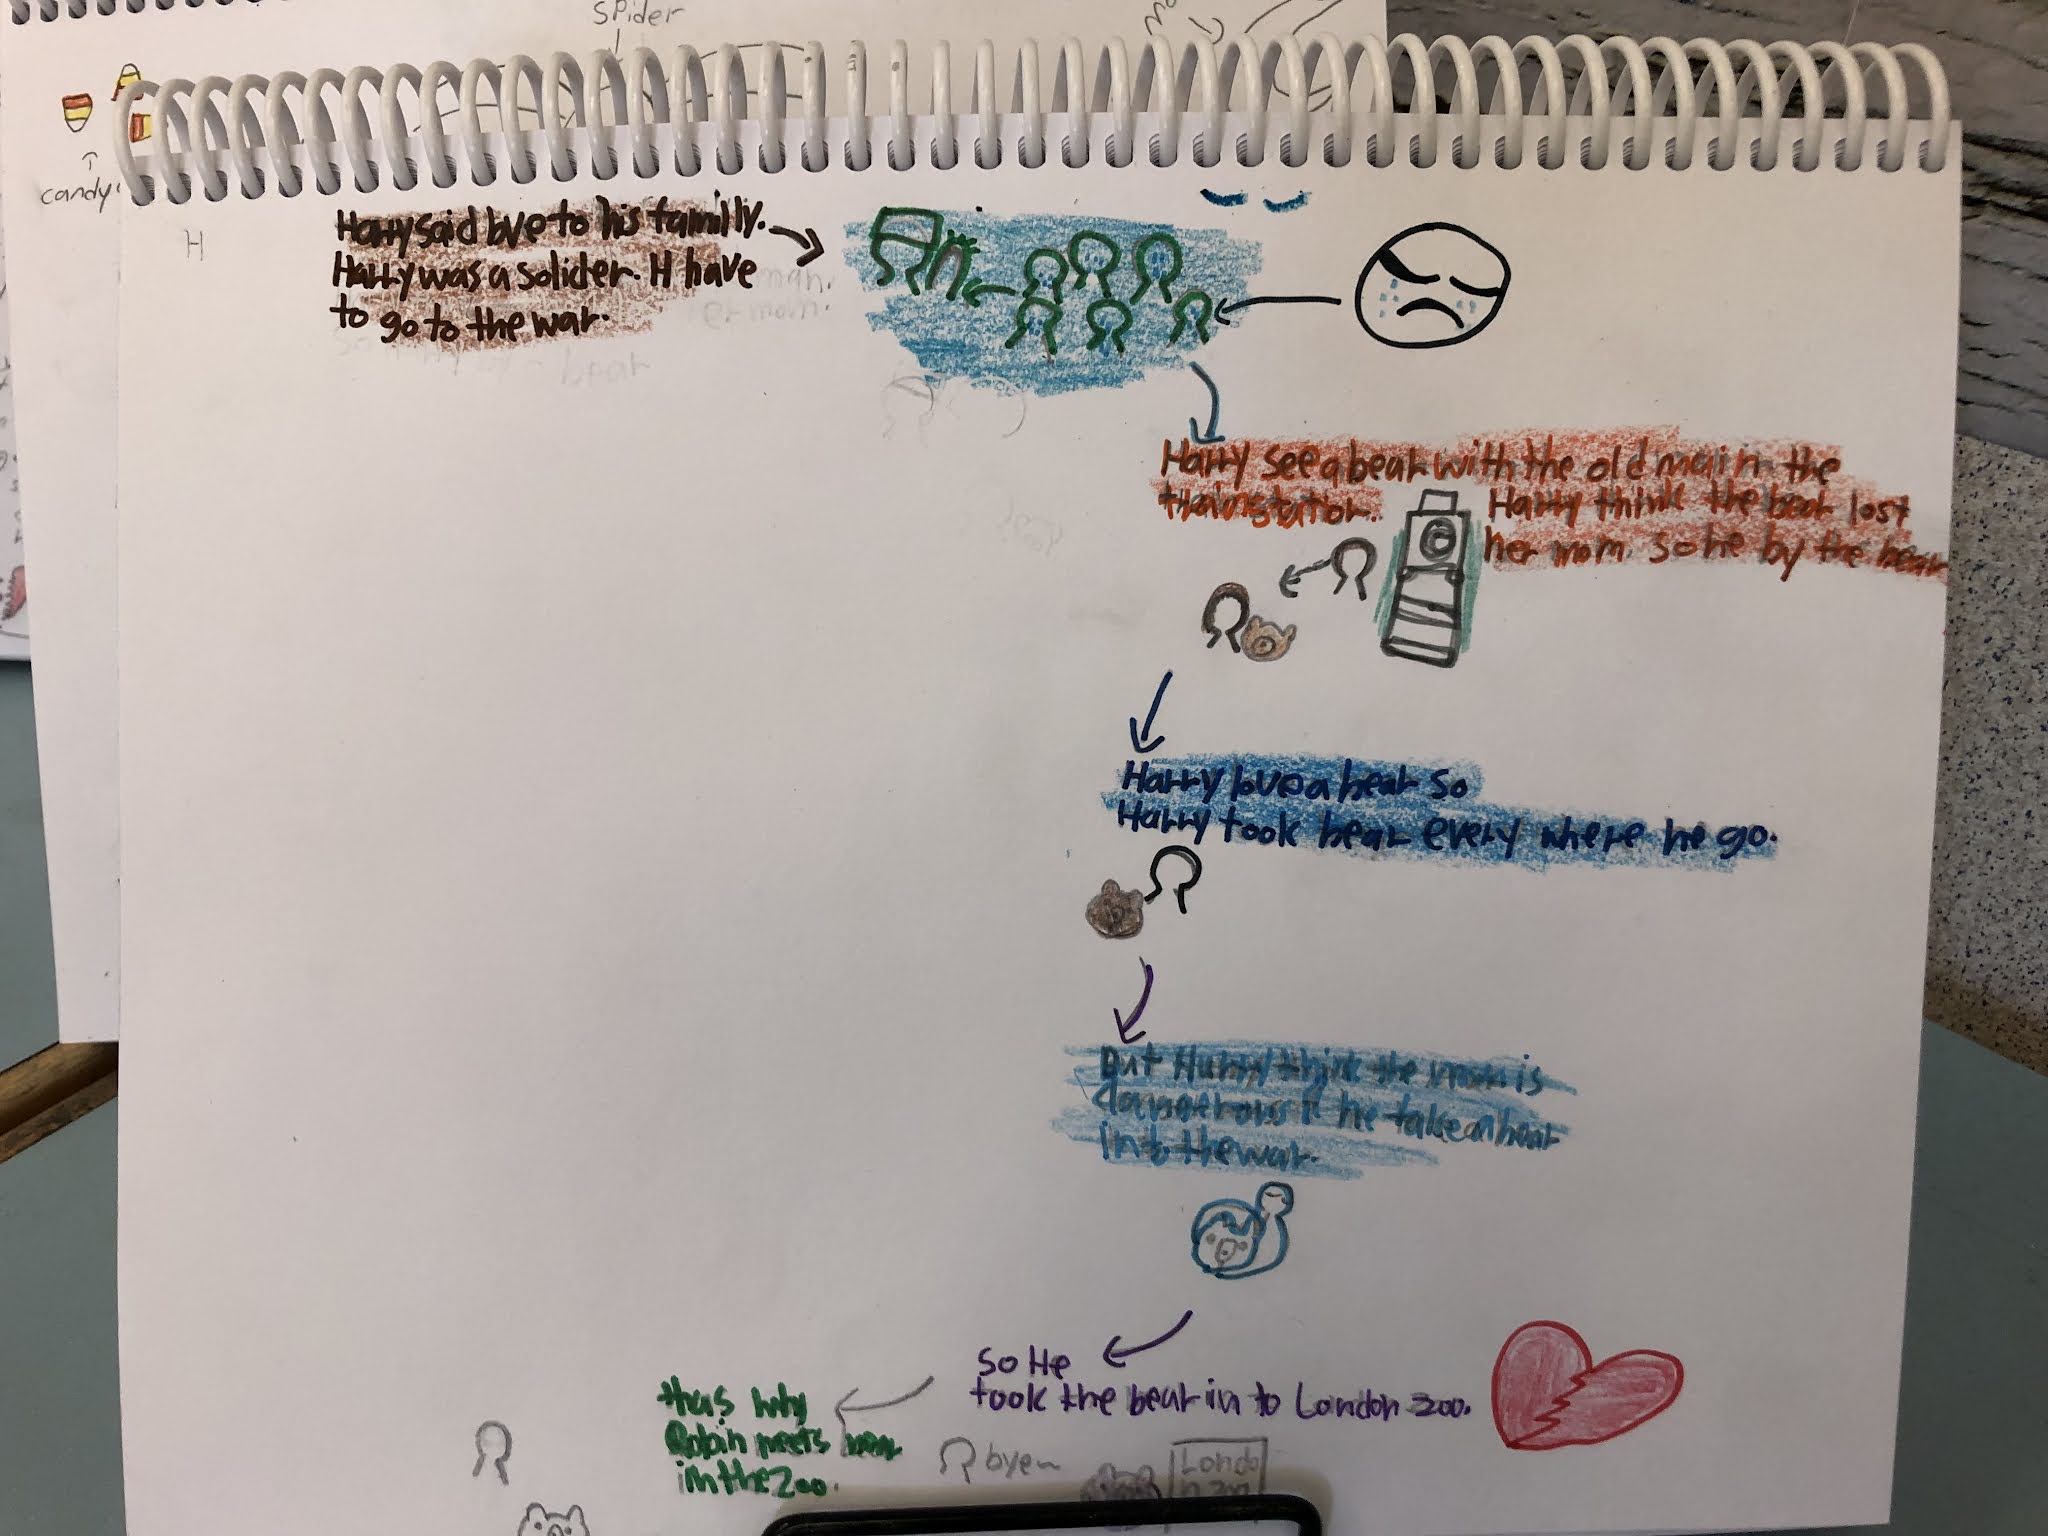 spider
candy
H
Harry said bye to his familly.
Harry was a solider. H have
to go to the war.
man.
er mom.
bear
Harry see a bear with the old ma in the
trainstation.
Harry think the bear lost
her mom. so he by the bear
Harry love a bear so
Harry took bear every where he go.
But Harry think the is
if he take a bear
in to the war.
So He
took the bear in to London zoo.
thas why
Robin meets bear
in the zoo.
bye~
Londo
n zoo